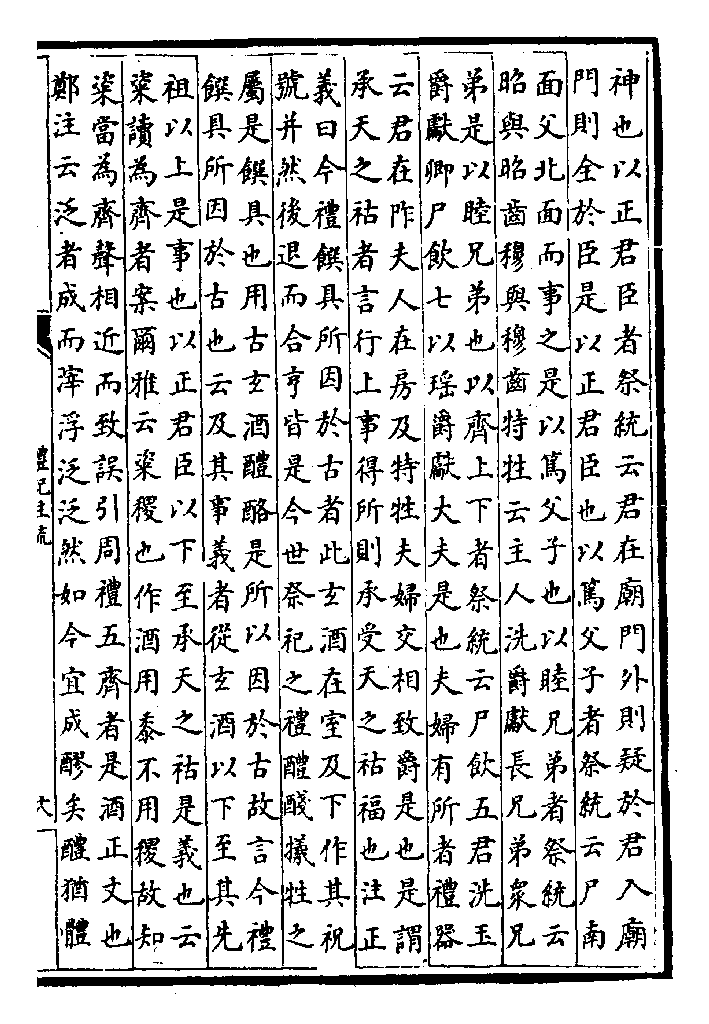 神也以正君臣者祭統云君在廟門外則疑於君入廟
門則全於臣是以正君臣也以篤父子者祭統云尸南
面父北面而事之是以篤父子也以睦兄弟者祭統云
昭與昭齒穆與穆齒特牲云主人洗爵獻長兄弟衆兄
弟是以睦兄弟也以齊上下者祭統云尸飲五君洗玉
爵獻卿尸飲七以瑶爵獻大夫是也夫婦有所者禮器
云君在阼夫人在房及特牲夫婦交相致爵是也是謂
承天之祜者言行上事得所則承受天之祜福也注正
義曰今禮饌具所因於古者此玄酒在室及下作其祝
號并然後退而合亨皆是今世祭祀之禮醴醆犧牲之
屬是饌具也用古玄酒醴酪是所以因於古故言今禮
饌具所因於古也云及其事義者從玄酒以下至其先
祖以上是事也以正君臣以下至承天之祜是義也云
粢讀為齊者案爾雅云粢稷也作酒用黍不用稷故知
粢當為齊聲相近而致誤引周禮五齊者是酒正文也
鄭注云泛者成而滓浮泛泛然如今宜成醪矣醴猶體
禮記注疏